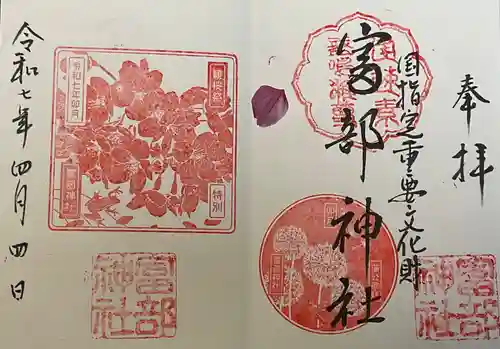 奉拝
国指定重要文化財
富部神社
令和七年卯月
特別
富部神社
富部神社
富部神社
令和七年四月四日